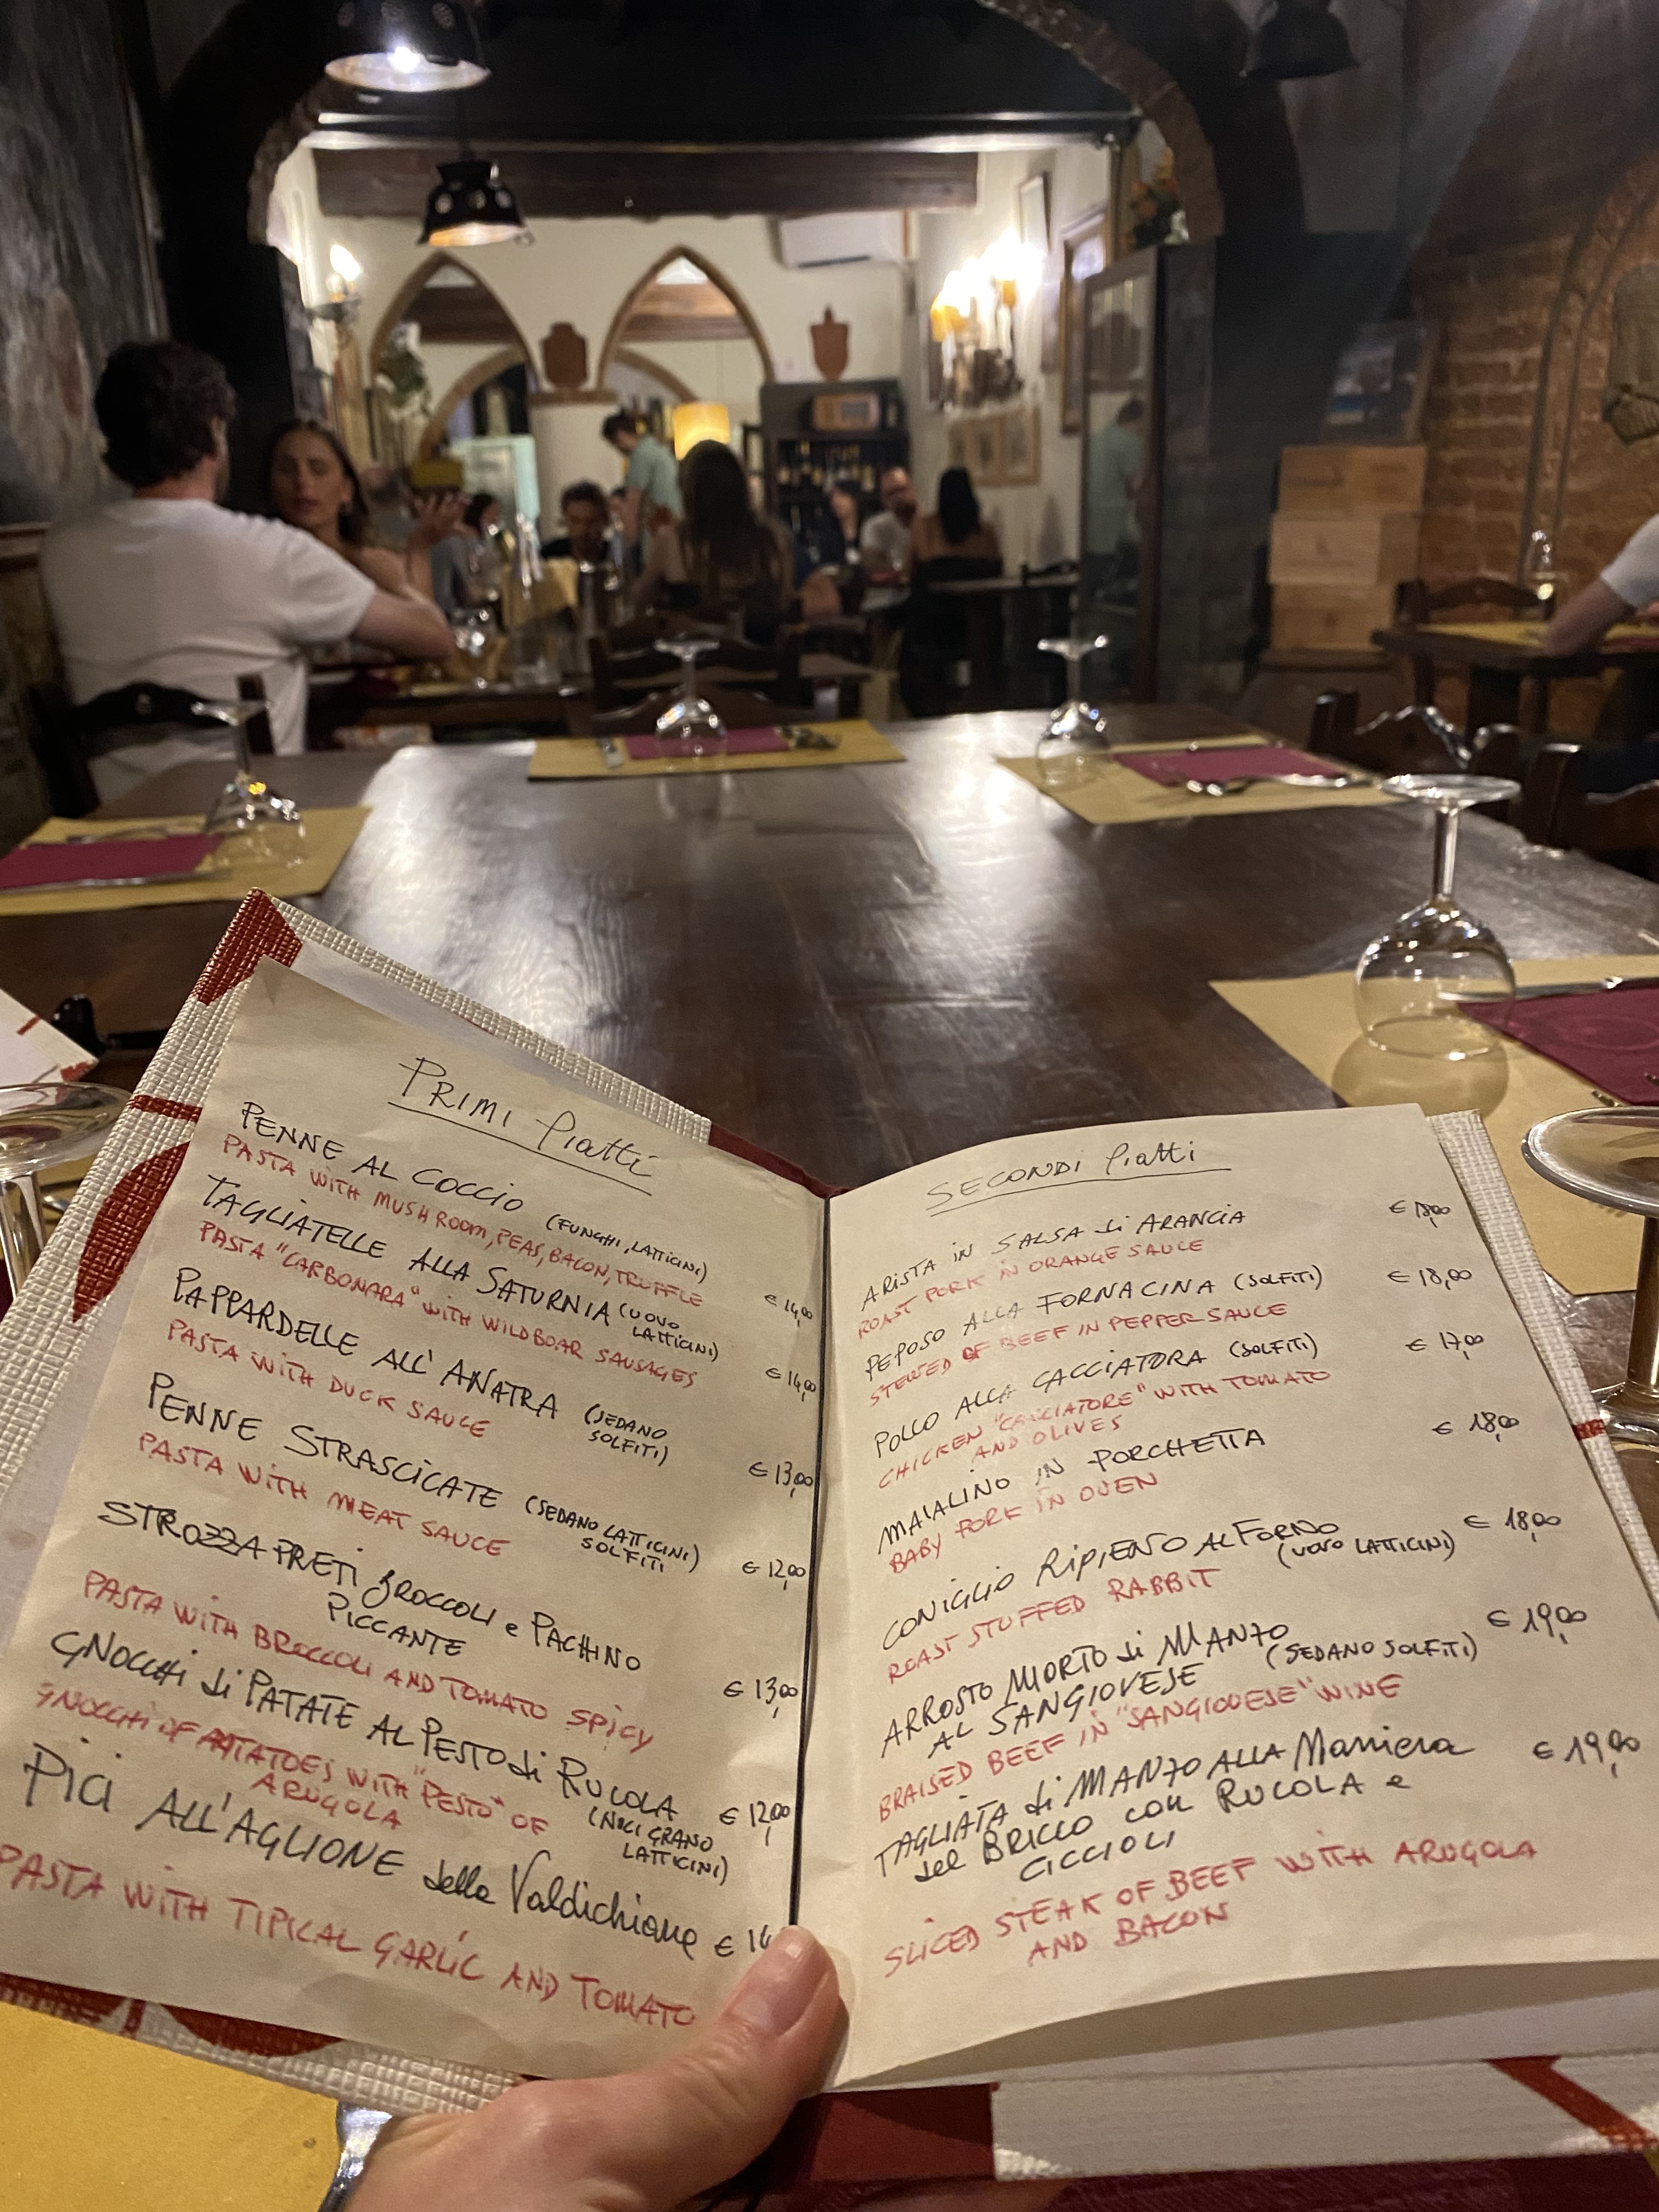 PRIMI Piatti
PENNE AL COCCIO (FUNGHI, LATTICINI)
PASTA WITH MUSHROOM, PEAS, BACON, TRUFFLE
€ 14,00
TAGLIATELLE ALLA SATURNIA (UOVO
LATTICINI)
PASTA "CARBONARA" WITH WILD BOAR SAUSAGES
€ 14,00
PAPPARDELLE ALL' ANATRA (SEDANO
SOLFITI)
PASTA WITH DUCK SAUCE
€ 13,00
PENNE STRASCICATE (SEDANO LATTICINI)
SOLFITI
PASTA WITH MEAT SAUCE
€ 12,00
STROZZAPRETI BROCCOLI e PACHINO
PICCANTE
PASTA WITH BROCCOLI AND TOMATO SPICY
€ 13,00
GNOCCHI di PATATE AL PESTO di RUCOLA
(NOCI GRANO
LATTICINI)
GNOCCHI OF PATATOES WITH "PESTO" OF
ARUGOLA
€ 12,00
PICI ALL'AGLIONE della Valdichiana €
PASTA WITH TIPICAL GARLIC AND TOMATO
SECONDI Piatti
ARISTA IN SALSA di ARANCIA
ROAST PORK IN ORANGE SAUCE
PEPOSO ALLA FORNACINA (SOLFITI) € 18,00
STEWED OF BEEF IN PEPPER SAUCE
POLLO ALLA CACCIATORA (SOLFITI) € 17,00
CHICKEN "CACCIATORE" WITH TOMATO
AND OLIVES
MAIALINO IN PORCHETTA € 18,00
BABY PORK IN OVEN
CONIGLIO RIPIENO AL FORNO € 18,00
(UOVO LATTICINI)
ROAST STUFFED RABBIT
ARROSTO MORTO di MANZO € 19,00
AL SANGIOVESE (SEDANO SOLFITI)
BRAISED BEEF IN "SANGIOVESE" WINE
TAGLIATA di MANZO ALLA Maniera € 19,00
del BRICCO con RUCOLA e
CICCIOLI
SLICED STEAK OF BEEF WITH ARUGOLA
AND BACON